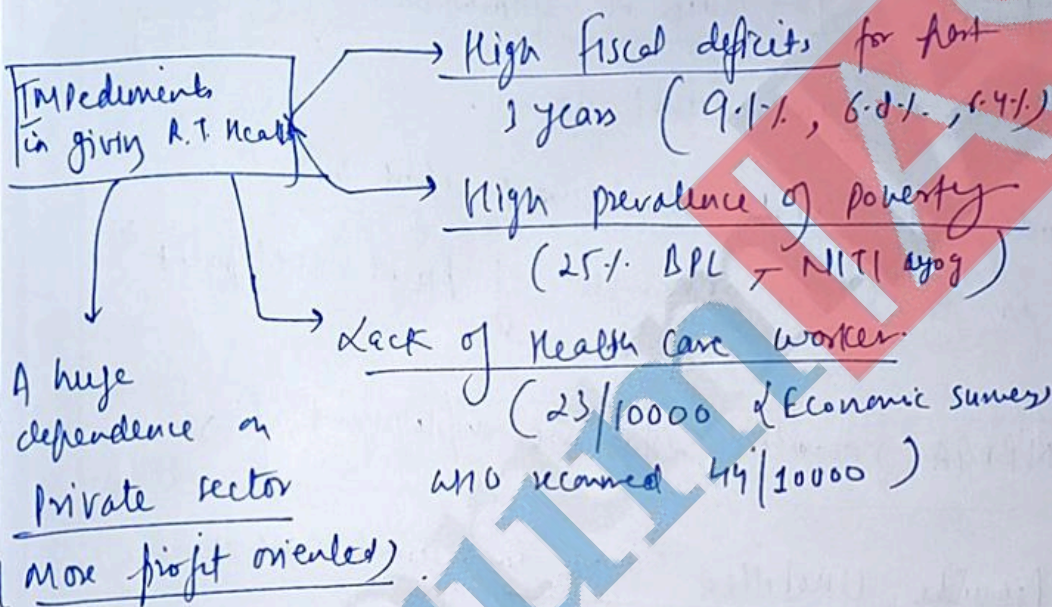 Impediments
in giving R.T. Health
High fiscal deficits for past
3 years ( 9.1%, 6.8%, 6.4%)
High prevalence of poverty
(25% BPL - NITI ayog)
Lack of Health care worker.
(23/10000 {Economic survey
WHO recommed 44/10000 )
A huge
dependence on
Private sector
(More profit oriented).
um
IA